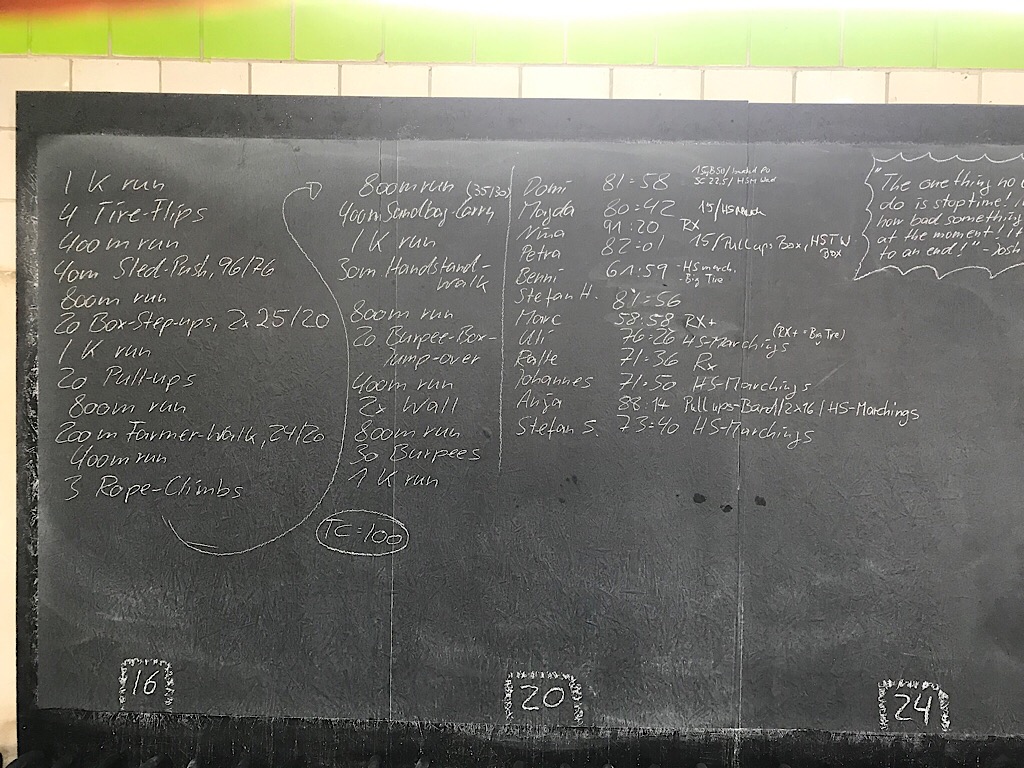 1 K run
4 Tire-Flips
400m run
40m Sled-Push, 96/76
800m run
20 Box-Step-ups, 2x 25/20
1 K run
20 Pull-ups
800m run
200m Farmer-Walk, 24/20
400m run
3 Rope-Climbs
800m run (35/30)
400m Sandbag-Carry
1 K run
30m Handstand-
walk
800m run
20 Burpee-Box-
Jump-over
400m run
2x Wall
800m run
30 Burpees
1 K run
TC=100
Domi 81:58
Magda 80:42 15/HS March
Nina 91:20 RX
Petra 82:01 15/Pull ups Box, HSTW
Box
Benni 61:59 -HS march.
-Big Tire
Stefan H. 81:56
Marc 58:58 RX+
Uli 76:26 HS-Marchings (RX+ = Big Tire)
Kalle 71:36 Rx
Johannes 71:50 HS-Marchings
Anja 88:14 Pull ups-Band/2x16/HS-Marchings
Stefan S. 73:40 HS-Marchings
"The one thing no
do is stop time!
how bad something
at the moment! it
to an end!" - Josh
16
20
24